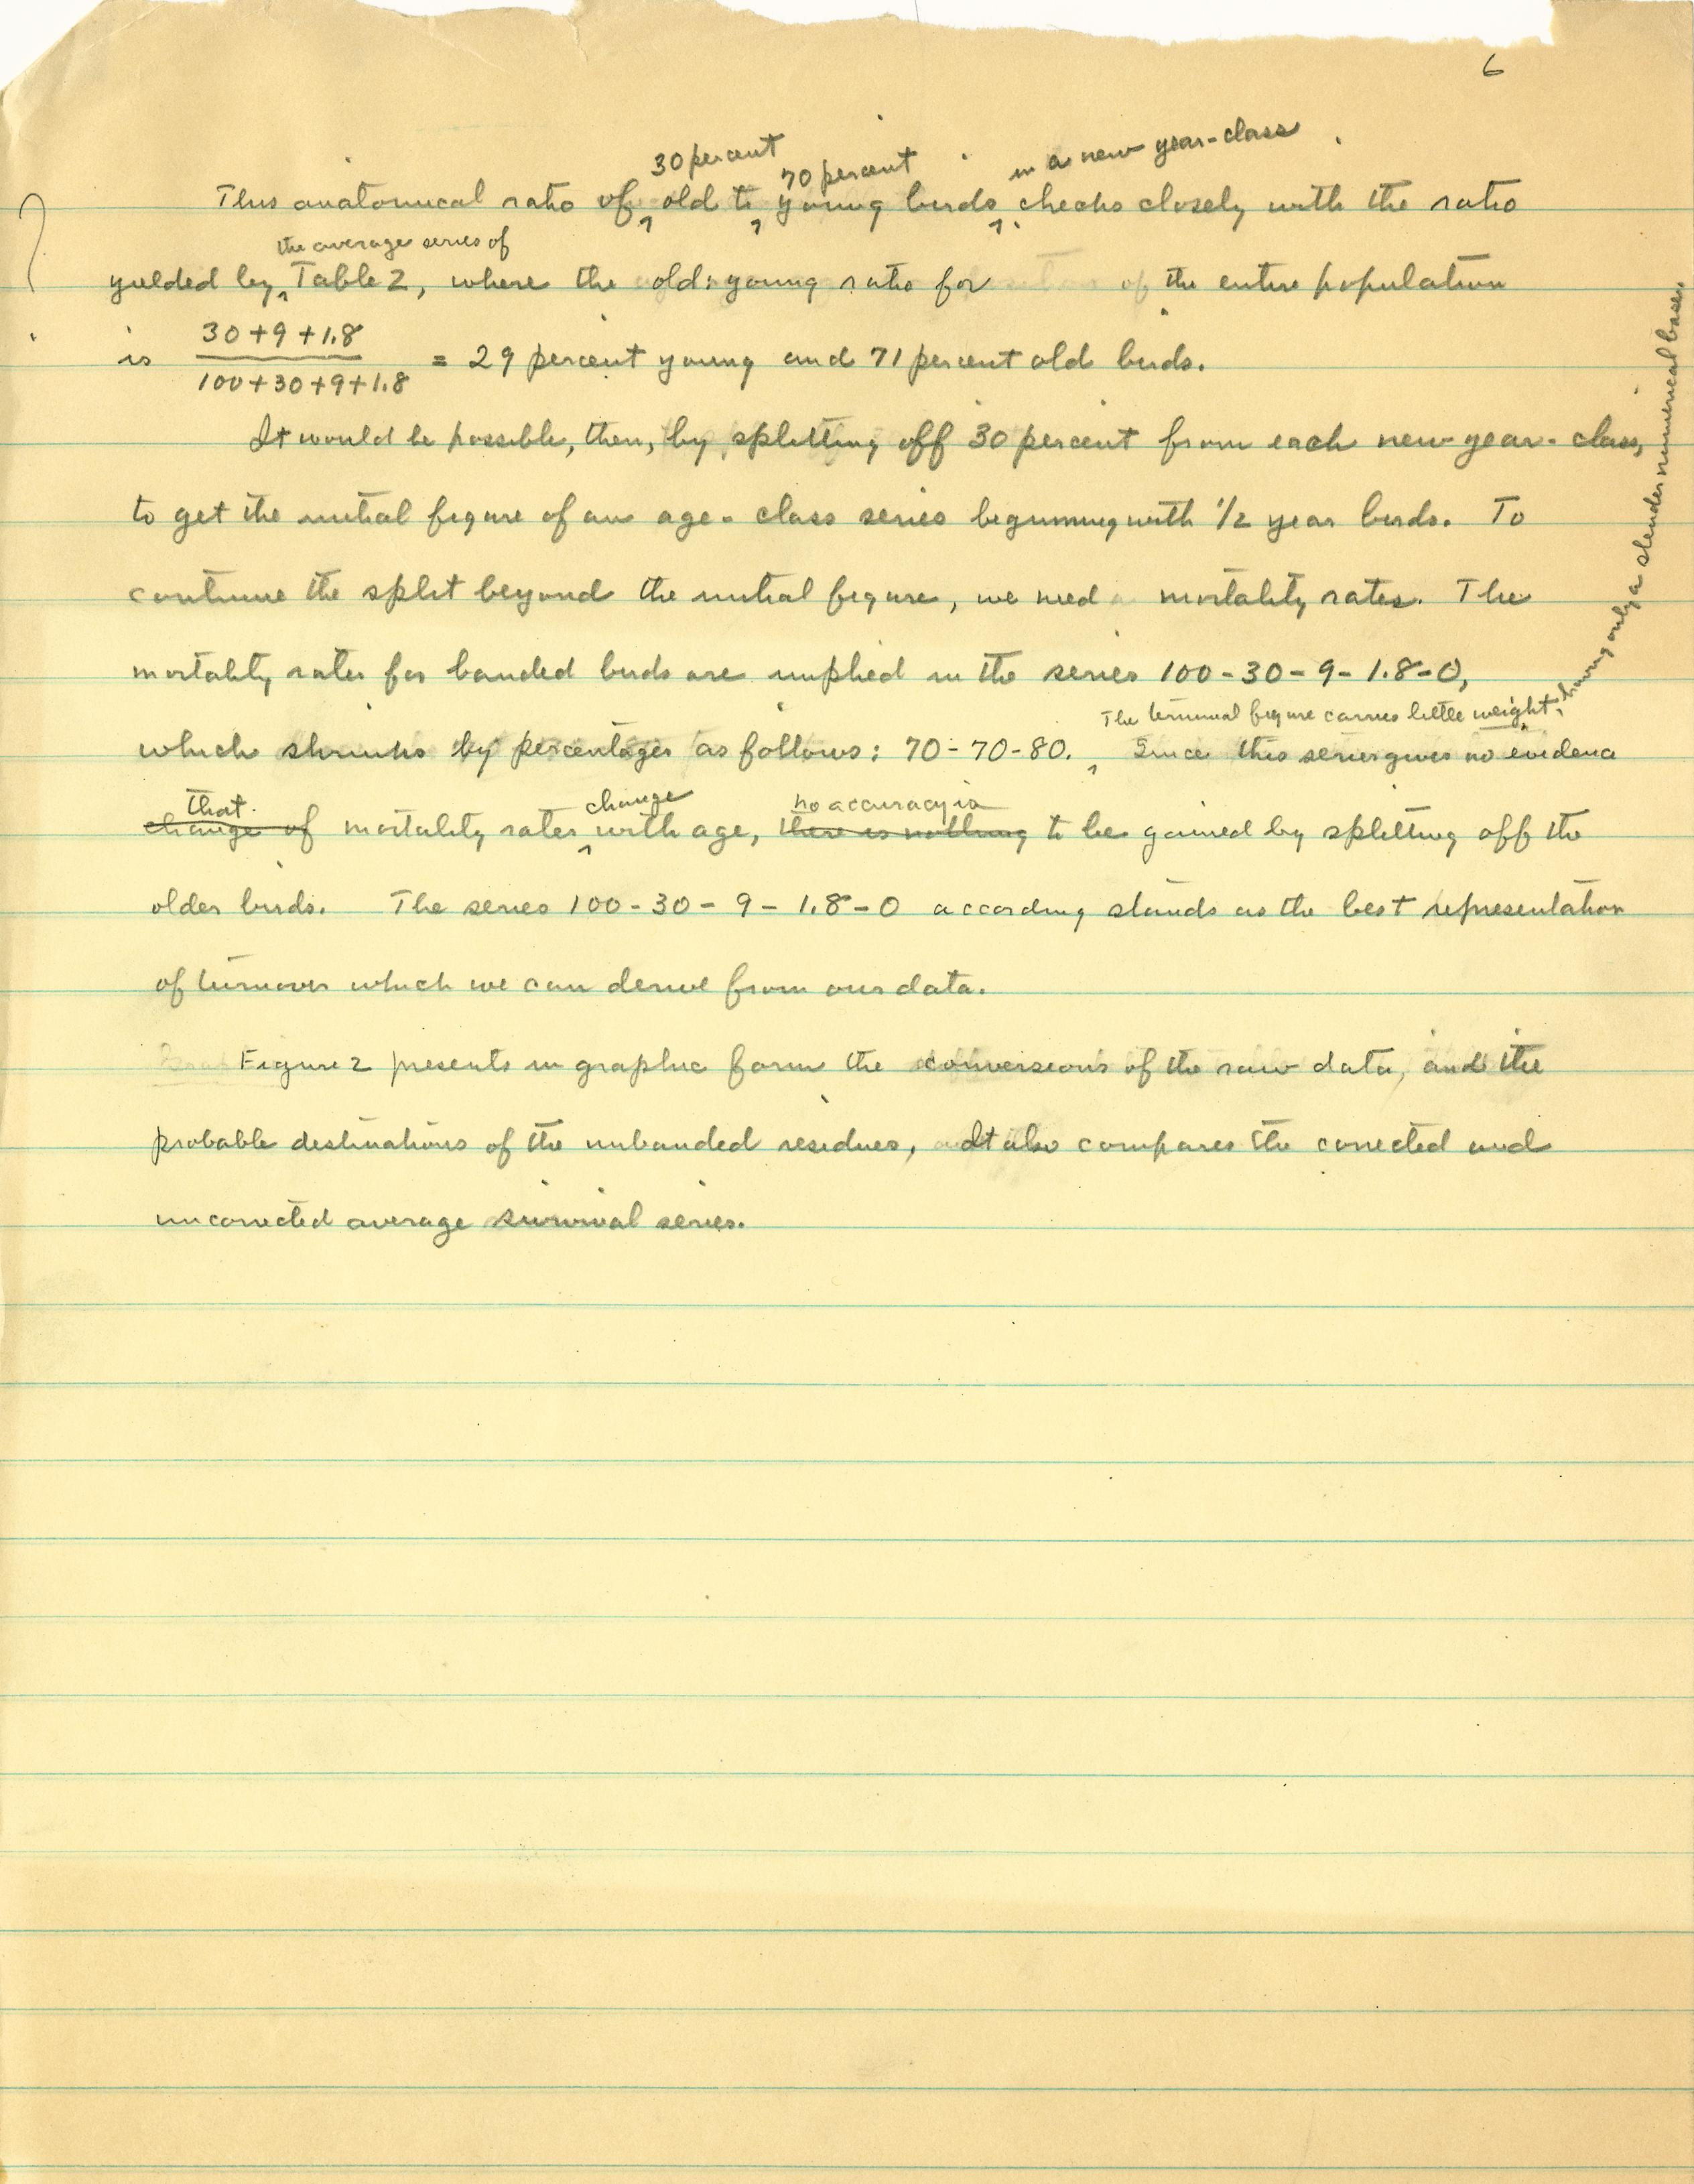 6
30 percent 70 percent in a new year-class
This anatomical ratio of old to young birds checks closely with the ratio
the average series of
yielded by Table 2, where the old:young ratio for of the entire population
is 30+9+1.8 / 100+30+9+1.8 = 29 percent young and 71 percent old birds.
It would be possible, then, by splitting off 30 percent from each new year-class,
to get the initial figure of an age-class series beginning with 1/2 year birds. To
continue the split beyond the initial figure, we need mortality rates. The
mortality rates for banded birds are implied in the series 100-30-9-1.8-0,
The terminal figure carries little weight, having only a slender numerical base.
which shrinks by percentages as follows: 70-70-80. Since this series gives no evidence
that change no accuracy is
change of mortality rates with age, there is nothing to be gained by splitting off the
older birds. The series 100-30-9-1.8-0 according stands as the best representation
of turnover which we can derive from our data.
Figure 2 presents in graphic form the conversions of the raw data, and the
probable destinations of the unbanded residues, It also compares the corrected and
uncorrected average survival series.